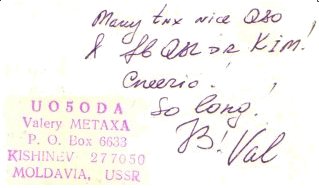 Many tnx nice QSO
& fb QSL dr KIM!
Cheerio!
So long!
73! Val
UO5ODA
Valery METAXA
P. O. Box 6633
KISHINEV 277050
MOLDAVIA, USSR